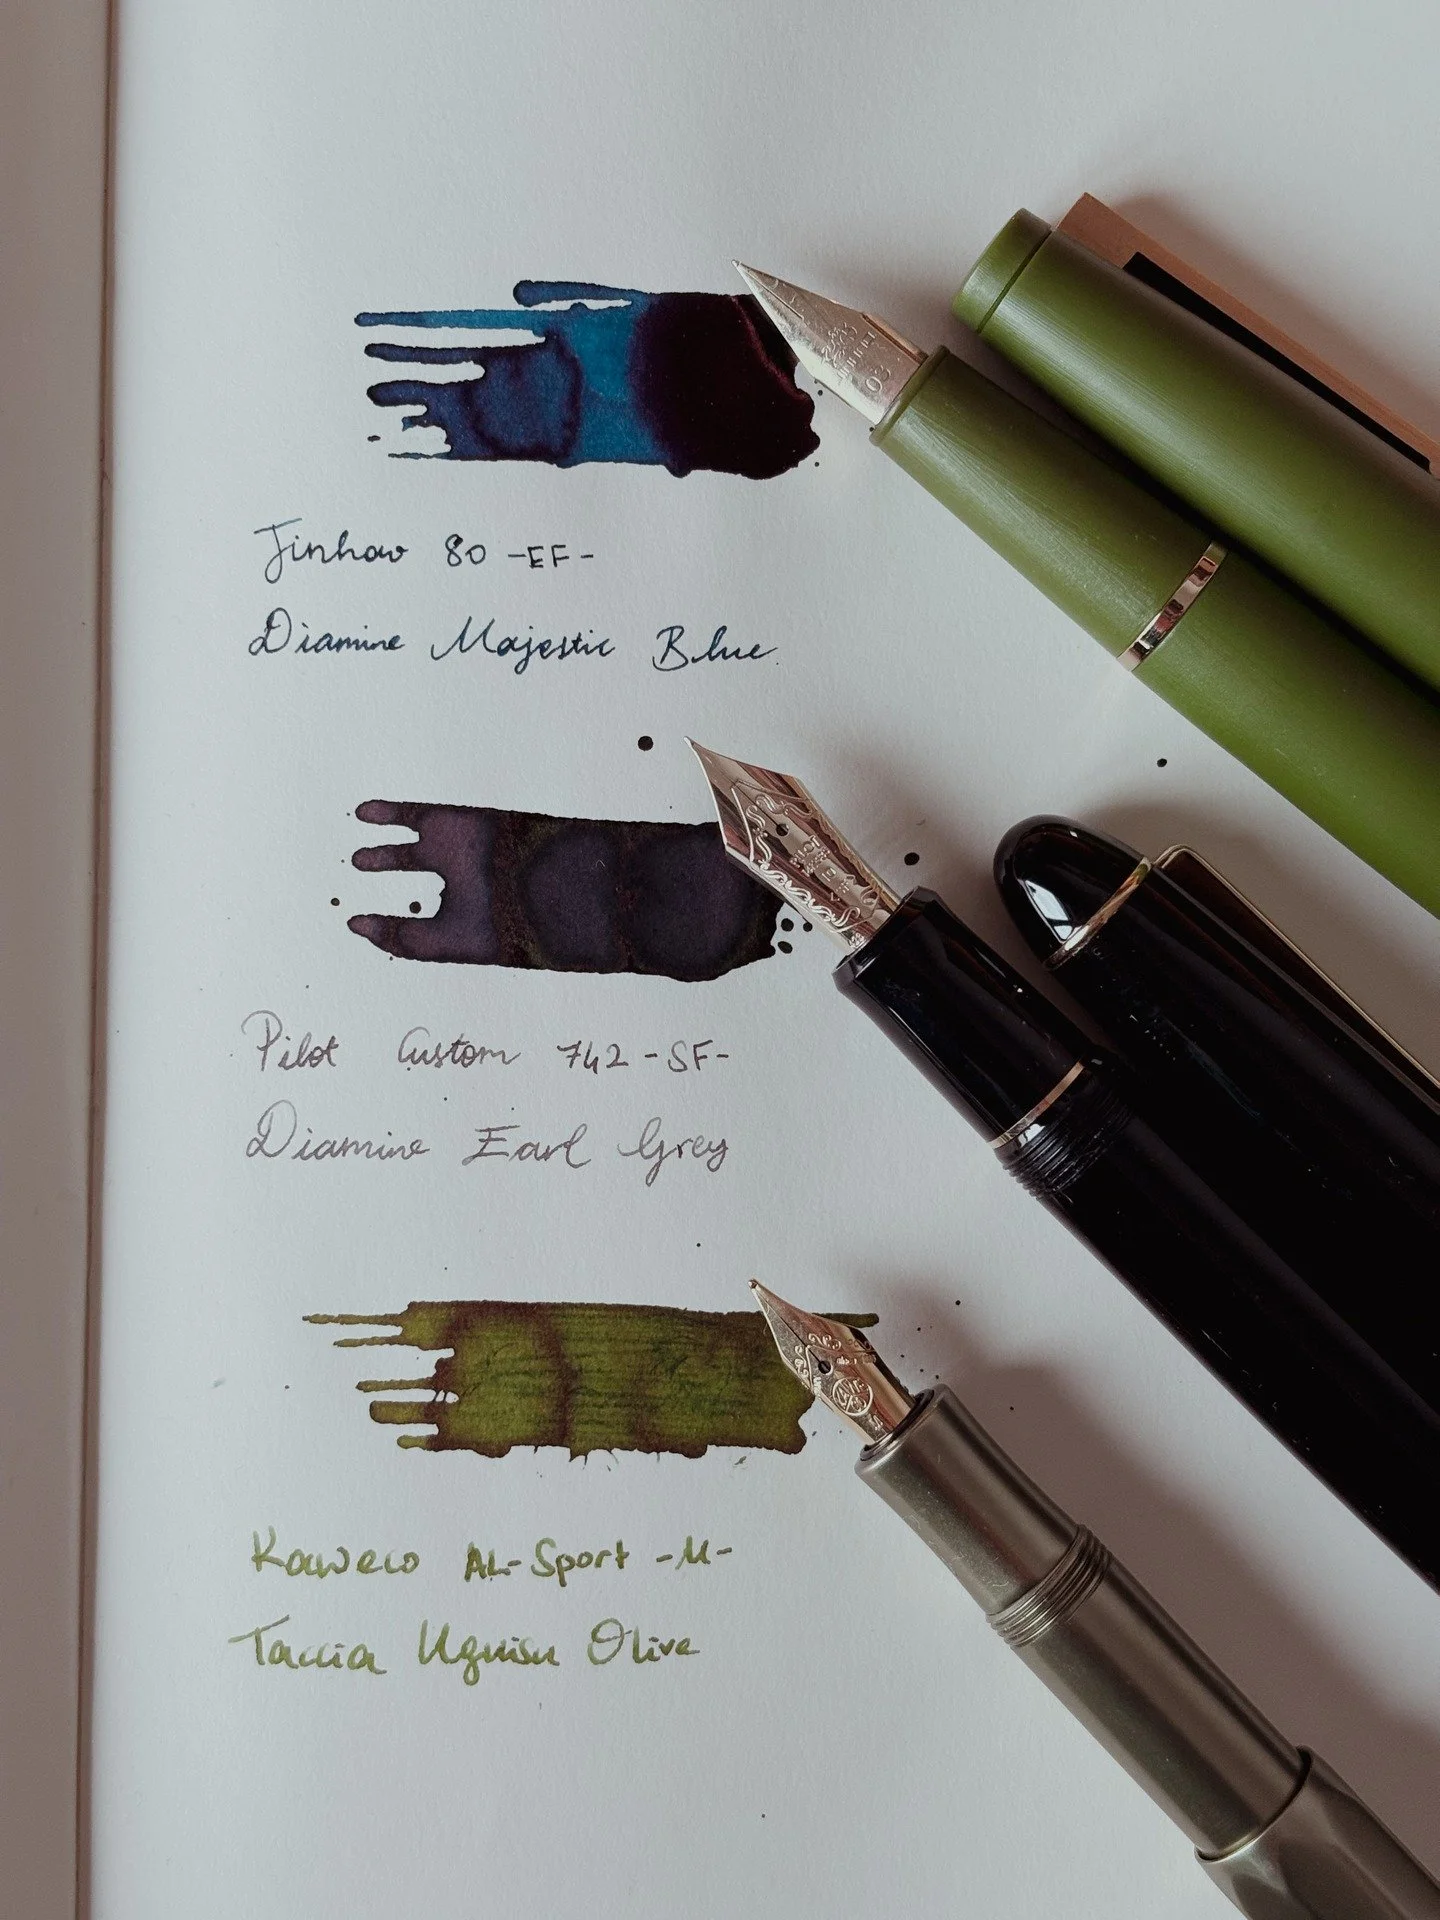 Jinhao 80 -EF-
Diamine Majestic Blue
Pilot Custom 742 -SF-
Diamine Earl Grey
Kaweco AL-Sport -M-
Taccia Uguisu Olive